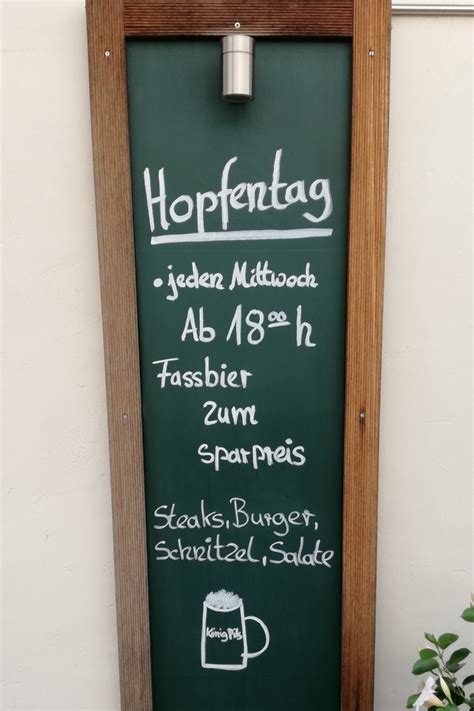 Hopfentag
• jeden Mittwoch
Ab 18⁰⁰ h
Fassbier
zum
Sparpreis
Steaks, Burger,
Schnitzel, Salate
König Pils